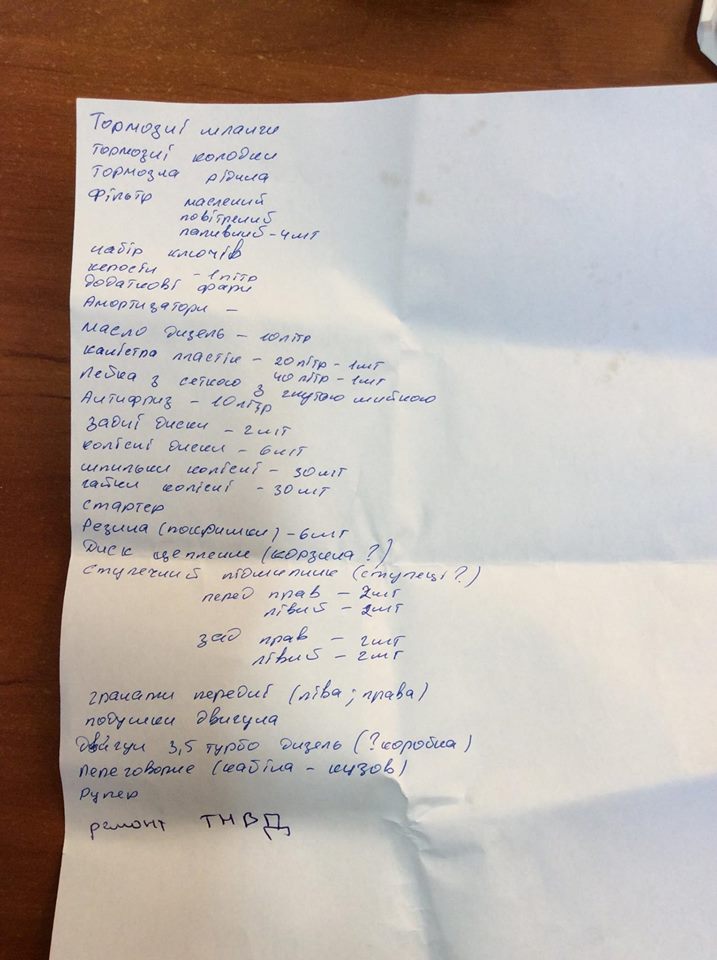 Тормозні шланги
тормозні колодки
тормозна рідина
Фільтр маслений
повітрений
паливний - 4шт
набір ключів
керосін - 1літр
додаткові фари
Амортизатори -
масло дизель - 10літр
каністра пластік - 20літр - 1шт
40літр - 1шт
Лейка з сеткою з гнутою шийкою
Антифриз - 10літр
задні диски - 2шт
колісні диски - 6шт
шпильки колісні - 30шт
гайки колісні - 30шт
стартер
Резина (покришки) - 6шт
Диск щеплення (корзина ?)
ступечний підшипник (ступеці ?)
перед прав - 2шт
лівий - 2шт
зад прав - 2шт
лівий - 2шт
гранати передні (ліва ; права)
подушки двигуна
двігун 3,5 турбо дизель (? коробка)
переговорне (кабіна - кузов)
Рупер
ремонт ТНВД